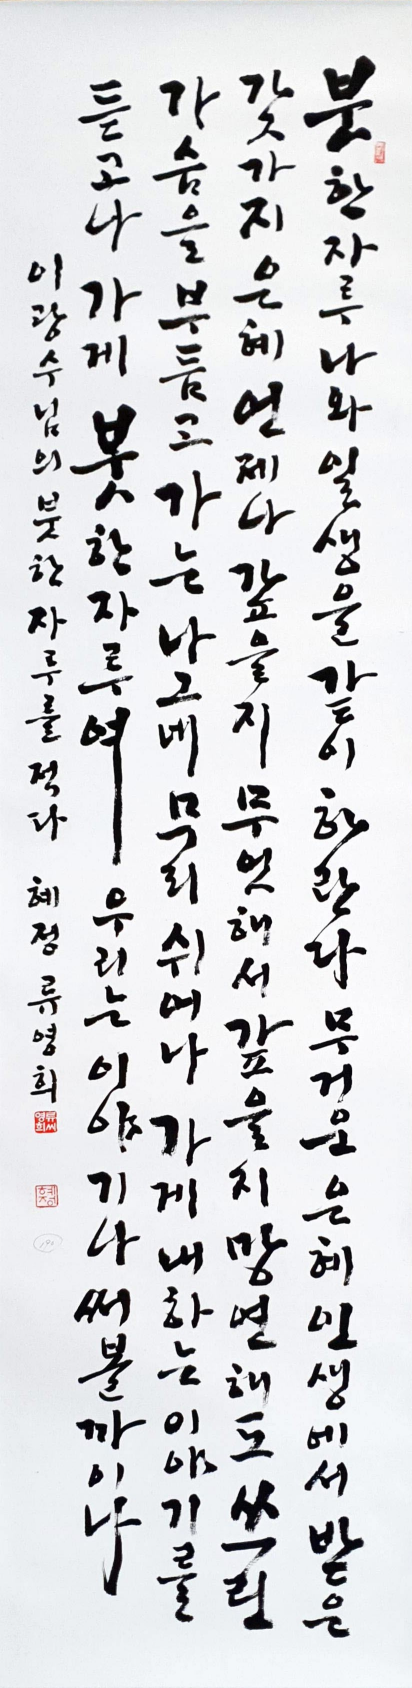 붓한자루나와일생을같이하란다무거운은혜인생에서받은
갖가지은혜언제나갚을지무엇해서갚을지망연해도쓰린
가슴을부듬고가는나그네무리쉬여나가게내하는이야기를
듣고나가게붓한자루여우리는이야기나써볼까이나
이광수님의붓한자루를적다 혜정류영희